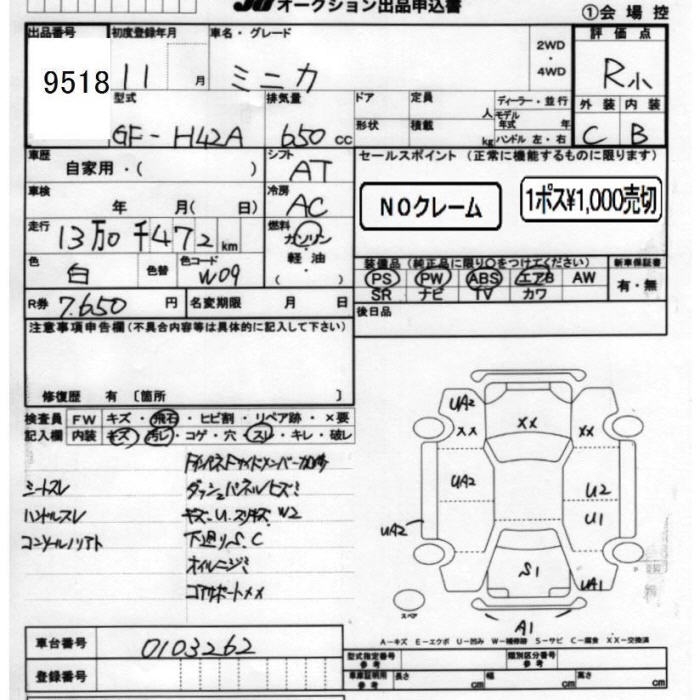 オークション出品申込書
①会場控
出品番号
9518
初度登録年月
11 月
車名・グレード
ミニカ
2WD
・
4WD
評価点
R小
型式
GF-H42A
排気量
650 cc
ドア
定員
人
形状
積載
kg
ディーラー・並行
モデル年式 年
ハンドル 左・右
外装 内装
C B
車歴
自家用・( )
シフト
AT
車検
年 月( 日)
冷房
AC
走行
13万0千472 km
燃料
ガソリン
・
軽油
・
( )
色
白
色替
色コード
W09
R券 7.650 円
名変期限 月 日
セールスポイント (正常に機能するものに限ります)
NOクレーム
1ポス¥1,000売切
装備品(純正品に限り○をつけてください)
PS PW ABS エアB AW
SR ナビ TV カワ
新車保証書
有・無
後日品
注意事項申告欄(不具合内容等は具体的に記入して下さい)
修復歴 有〔箇所 〕
検査員記入欄
FW キズ・飛石・ヒビ割・リペア跡・×要
内装 キズ・汚レ・コゲ・穴・スレ・キレ・破レ
シートスレ
ダッシュパネルヒズミ
ハンドルスレ
キズ、U、スリキズ W2
下廻りS、C
コアサポートXX
UA2
XX
XX
XX
UA2
U2
U1
UA2
S1
UA1
A1
スペア
A-キズ E-エクボ U-凹み W-補修跡 S-サビ C-腐食 XX-交換済
車台番号 0103262
登録番号
型式指定番号 参考
類別区分番号 参考
車庫証明用 参考 長さ cm 幅 cm 高さ cm